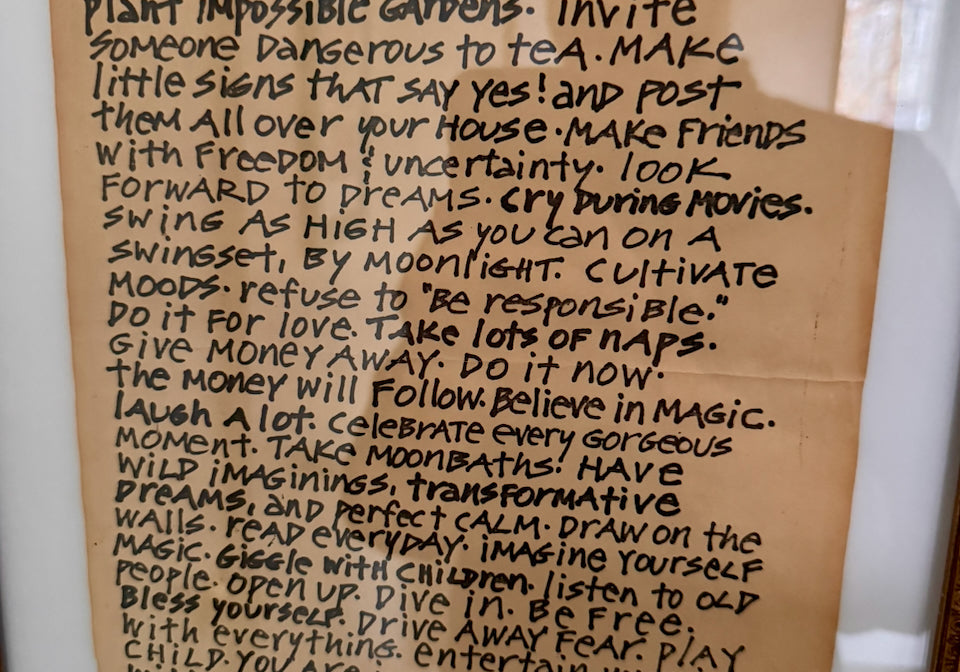 plant impossible Gardens. Invite
someone Dangerous to teA. MAKe
little signs thAT SAY yes! and post
them All over your House. MAKe Friends
with Freedom & uncertainty. look
Forward to DreAMs. Cry During Movies.
Swing AS HiGH AS you can on A
Swingset, By Moonlight. Cultivate
Moods. refuse to "Be responsible."
Do it For love. TAke lots of nAps.
Give Money AWAY. Do it now.
the Money will Follow. Believe in MAGic.
lAugh A lot. CeleBrATe every GorGeous
Moment. TAKe MoonBAths. HAve
Wild imaginings, transFormAtive
DreAMs, and perfect CALM. DrAW on the
WAlls. reAD everyDAY. iMAGine Yourself
MAGic. GiGGle with CHilDren. listen to OLD
people. Open up. Dive in. Be Free.
Bless yourself. Drive AWAY FeAr. plAY
With everything. entertain
CHilD. You Are